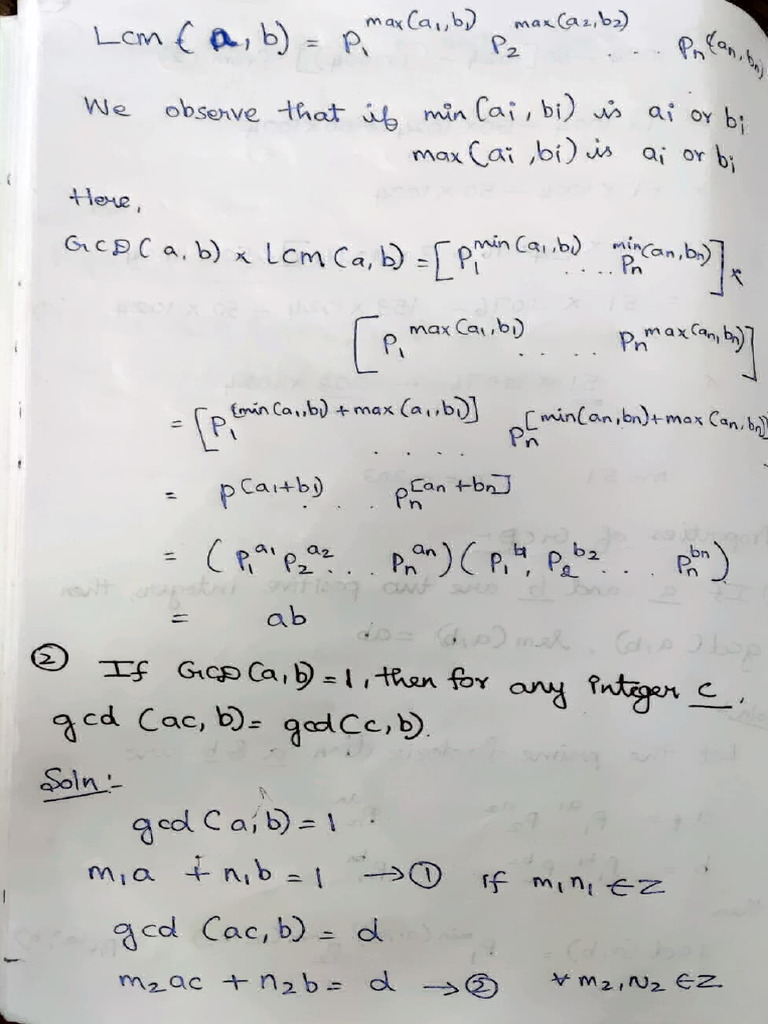 Lcm (a,b) = P₁^max(a₁,b₁) P₂^max(a₂,b₂) .... Pn^(an,bn)
We observe that if min (ai, bi) is ai or bi
max (ai, bi) is ai or bi
Here,
GCD(a,b) × LCM(a,b) = [P₁^min(a₁,b₁) .... Pn^min(an,bn)] ×
[P₁^max(a₁,b₁) .... Pn^max(an,bn)]
= [P₁^[min(a₁,b₁) + max(a₁,b₁)] .... Pn^[min(an,bn)+max(an,bn)]
= P^(a₁+b₁) ... Pn^[an+bn]
= (P₁^a₁ P₂^a₂ ... Pn^an) (P₁^b₁, P₂^b₂ ... Pn^bn)
= ab
② If GCD(a,b)=1, then for any integer c,
gcd (ac, b) = gcd(c, b).
Soln:-
gcd (a,b) = 1
m₁a + n₁b = 1 → ① if m₁n₁ ∈ Z
gcd (ac, b) = d
m₂ac + n₂b = d → ② ∀ m₂,N₂ ∈ Z